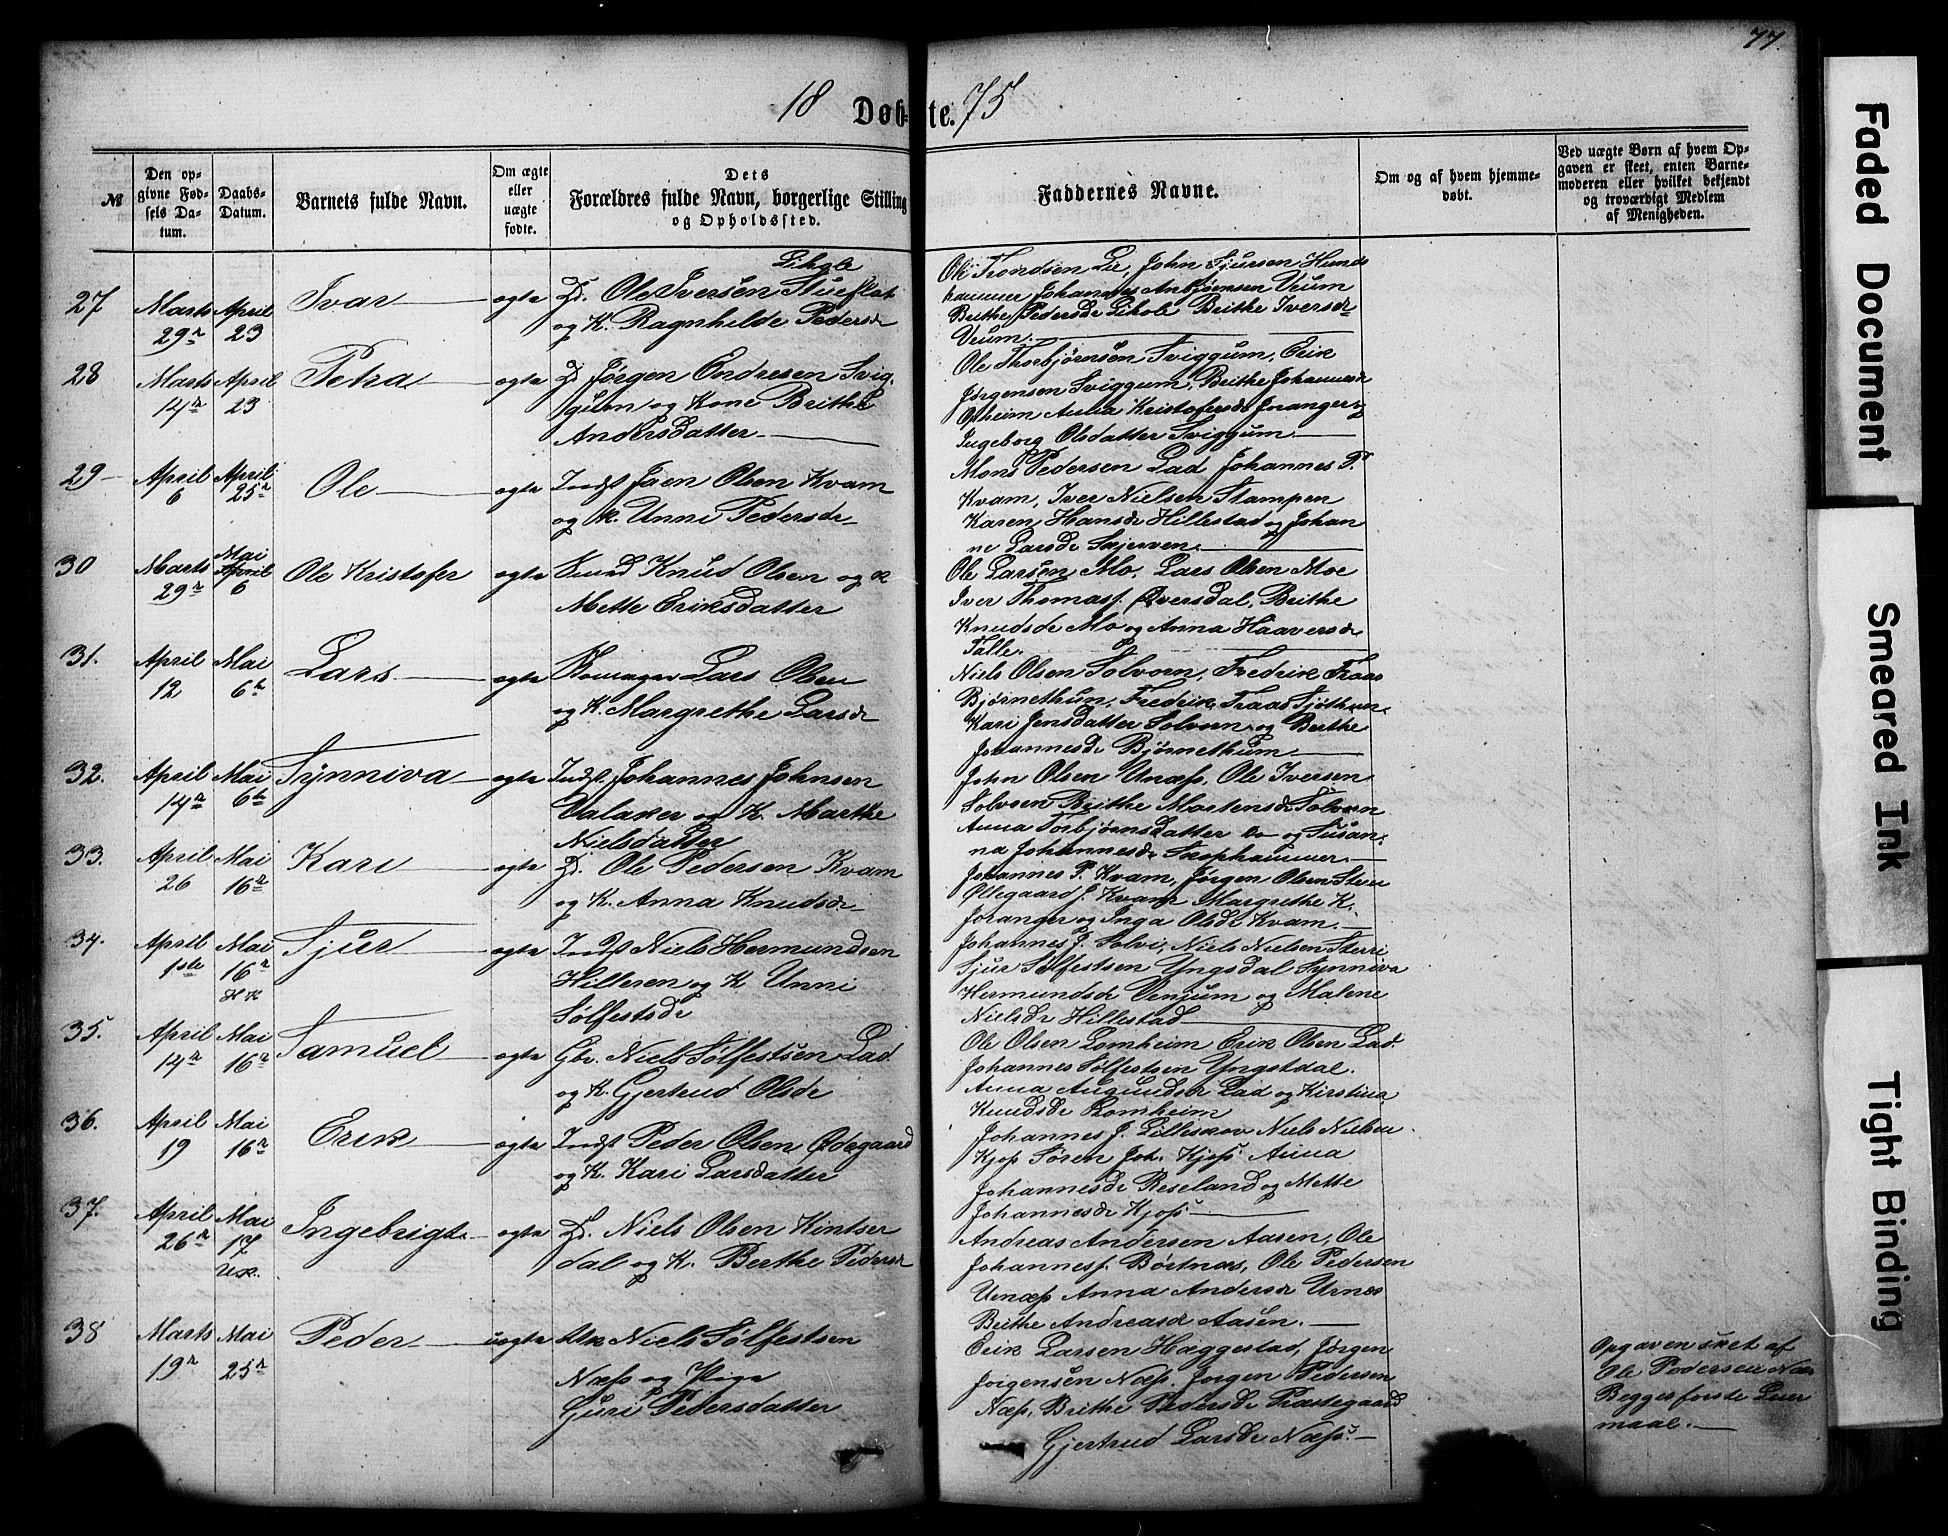 77.
18 Døbte. 75
№
Den opgivne Fødsels Datum.
Daabs-Datum.
Barnets fulde Navn.
Om ægte eller uægte fødte.
Dets Forældres fulde Navn, borgerlige Stilling og Opholdssted.
Faddernes Navne.
Om og af hvem hjemmedøbt.
Ved uægte Børn af hvem Opgaven er skeet, enten Barnemoderen eller hvilket bekjendt og troværdigt Medlem af Menigheden.
27 Marts 29n April 23 Ivar ægte
Lihole
Gd. Ole Iversen Stueflat
og K. Ragnhilde Pedersdr
Ole Trondsen Lie, John Sjursen Hunds
hammer Johannes Anbjørnsen Veum
Brithe Pedersdr Lihole Brithe Iversdr
Veum.
28 Marts 14n April 23 Petra ægte
Gd Jørgen Endresen Svig,
gum og Kone Brithe
Andersdatter
Ole Thorbjørnsen Sviggum, Erik
Jørgensen Sviggum, Brithe Johannesdr
Opheim Anna Kristofersdr Joranger og
Ingeborg Olsdatter Sviggum
29 April 6 April 25n Ole ægte
Indst Jaen Olsen Kvam
og K. Unni Pedersdr
Mons Pedersen Lad Johannes P.
Kvam, Iver Nielsen Stampen
Karen Hansdr Hillestad og Johan
ne Larsdr Skjerven
30 Marts 29n Mai April 6 Ole Kristofer ægte
Knud Olsen og K
Mette Eriksdatter
Ole Larsen Mo, Lars Olsen Moe
Iver Thomasf. Øversdal, Brithe
Knudsdr Mo og Anna Haaversdr
Talle.
31. April 12 Mai 6te Lars ægte
Lars Olsen
og K. Margrethe Larsdr
Niels Olsen Solvorn, Fredrik Traas
Bjørnethun, Fredrik Traas Sjøthun,
Kari Jensdatter Solvorn og Berthe
Johannesdr Bjørnethun
32. April 14n Mai 6te Synniva ægte
Indst. Johannes Johnsen
Dalaker og K. Marthe
Nielsdatter
John Olsen Urnæss, Ole Iversen
Solvorn Brithe Martensdr Solvorn
Anna Torbjørnsdatter do og Susan,
na Johannesdr Skophammer
33. April 26 Mai 16n Kari ægte
Gd. Ole Pedersen Kvam
og K. Anna Knudsdr
Johannes P. Kvam, Jørgen Olsen Steen
Ollegaard J. Kvam Margrethe K.
Joranger og Inga Olsdr Kvam.
34. April 1ste Mai 16n HK Sjur ægte
Indst Niels Hermundsen
Hilleren og K Unni
Sølfestsdr
Johannes J. Solvi, Niels Nielsen Sterri
Sjur Sølfestsen Yngsdal Synniva
Hermundsdr Venjum og Malene
Nielsdr Hillestad
35. April 14n Mai 16n Samuel ægte
Gbr. Niels Sølfestsen Lad
og K. Gjertrud Olsdr
Ole Olsen Lomheim Erik Olsen Lad.
Johannes Sølfestsen Yngstdal.
Anna Amundsdr Lad og Kirstina
Knudsdr Lomheim
36. April 19 Mai 16n Erik ægte
Indst Peder Olsen Ødegaard
og K. Kari Larsdatter
Johannes J. Lilleskov Niels Nielsen
Kjøs Søren Joh. Kjøs Anna
Johannesdr Reseland og Mette
Johannesdr Kjøs
37. April 26n Mai 17 Uk. Ingebrigt ægte
Gd. Niels Olsen Kintser
dal og K. Berthe Pedersdr
Andreas Andersen Aasen, Ole
Johannesf. Børtnæs, Ole Pedersen
Urnæss Anna Andersdr Urnes
Brithe Andreasdr Aasen.
38 Marts 19n Mai 25n Peder uægte
Uk Niels Sølfestsen
Næss og Pige
Guri Pedersdatter
Erik Larsen Haggestad, Jørgen
Jørgensen Næss. Jørgen Pedersen
Næss, Brithe Pedersdr Præstegaard
Gjertrud Larsdr Næss.
Opgaven sket af
Ole Pedersen Næs
Begges første Leier
maal.
Faded Document
Smeared Ink
Tight Binding